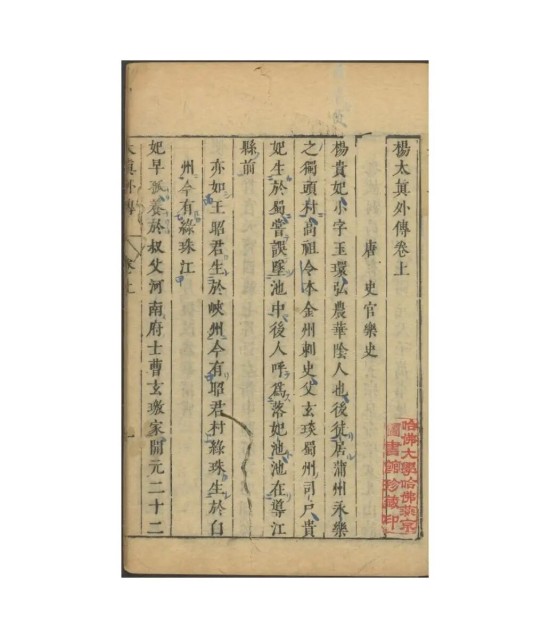 楊太眞外傳卷上
唐 史官樂史
楊貴妃小字玉環弘農華陰人也後徙居蒲州永樂
之獨頭村高祖令本金州刺史父玄琰蜀州司戶貴
妃生於蜀嘗誤墜池中後人呼爲落妃池池在導江
縣前
亦如王昭君生於峽州今有昭君村綠珠生於白
州今有綠珠江
妃早孤養於叔父河南府士曹玄璬家開元二十二
太眞外傳 卷上 一
哈佛大學哈佛燕京
圖書館珍藏印